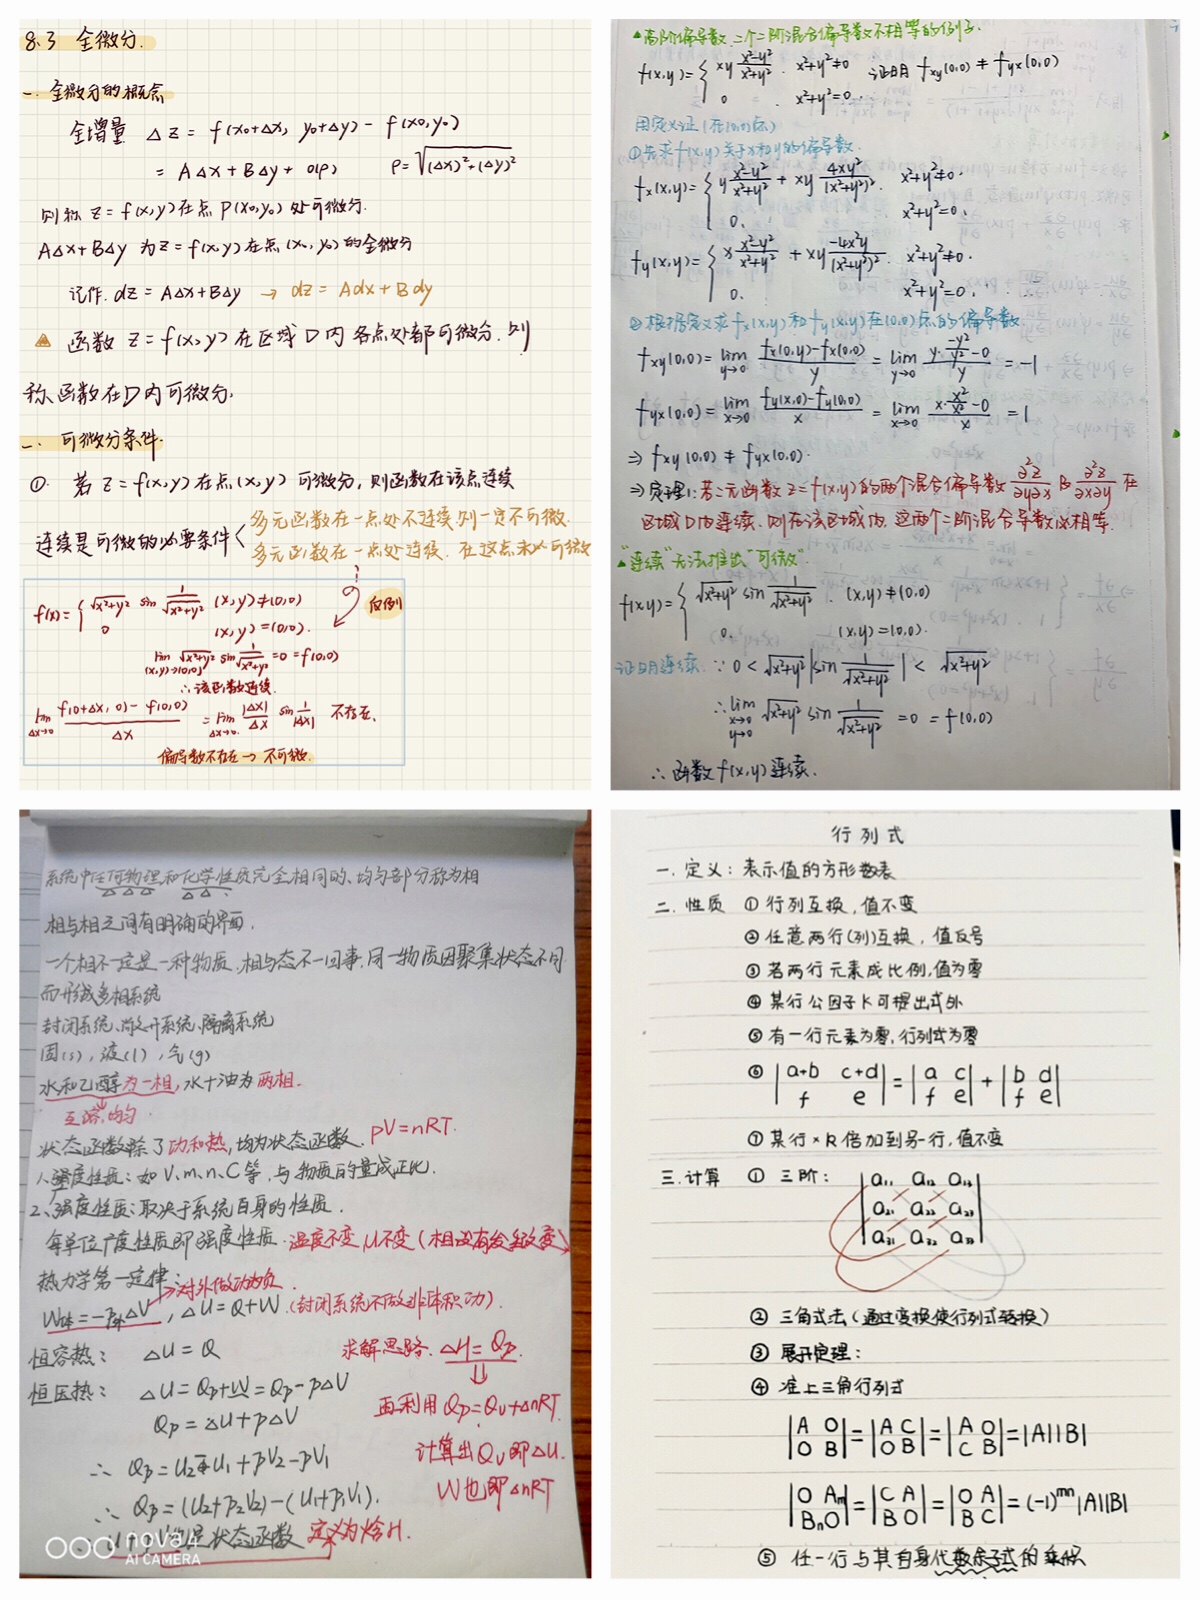 8.3 全微分.
一. 全微分的概念
全增量 Δz = f(x₀+Δx, y₀+Δy) - f(x₀,y₀)
= AΔx + BΔy + o(ρ) ρ=√(Δx)²+(Δy)²
则称 z = f(x,y) 在点 P(x₀,y₀) 处可微分.
AΔx+BΔy 为 z=f(x,y) 在点 (x₀, y₀) 的全微分
记作. dz = AΔx+BΔy → dz = Adx + Bdy
函数 z = f(x,y) 在区域 D 内各点处都可微分. 则
称函数在D内可微分.
二. 可微分条件.
①. 若 z = f(x,y) 在点 (x,y) 可微分, 则函数在该点连续
连续是可微的必要条件 < 多元函数在一点处不连续. 则一定不可微.
多元函数在一点处连续. 在这点未必可微
反例
f(x) = { √x²+y² sin 1/√x²+y² (x,y)≠(0,0)
0 (x,y)=(0,0).
lim (x,y)→(0,0) √x²+y² sin 1/√x²+y² = 0 = f(0,0)
∴ 该函数连续.
lim Δx→0 f(0+Δx, 0) - f(0,0) / Δx = lim Δx→0 |Δx|/Δx sin 1/|Δx| 不存在.
偏导数不存在 → 不可微.
▲高阶偏导数. 二个二阶混合偏导数不相等的例子.
f(x,y) = { xy x²-y²/x²+y² . x²+y²≠0 证明 fxy(0,0) ≠ fyx(0,0)
0 . x²+y²=0.
用定义证 (在(0,0)点)
①先求 f(x,y) 关于x和y的偏导数.
fx(x,y) = { y x²-y²/x²+y² + xy 4xy²/(x²+y²)². x²+y²≠0.
0. x²+y²=0.
fy(x,y) = { x x²-y²/x²+y² + xy -4x²y/(x²+y²)². x²+y²≠0.
0. x²+y²=0.
②根据定义求 fx(x,y) 和 fy(x,y) 在(0,0)点的偏导数
fxy(0,0) = lim y→0 fx(0,y)-fx(0,0)/y = lim y→0 y·-y²/y²-0/y = -1
fyx(0,0) = lim x→0 fy(x,0)-fy(0,0)/x = lim x→0 x·x²/x²-0/x = 1
⇒ fxy(0,0) ≠ fyx(0,0).
⇒ 定理1: 若二元函数 z=f(x,y) 的两个混合偏导数 ∂²z/∂y∂x 及 ∂²z/∂x∂y 在
区域D内连续. 则在该区域内. 这两个二阶混合导数必相等.
▲"连续"无法推出"可微"
f(x,y) = { √x²+y² sin 1/√x²+y² . (x,y)≠(0,0)
0. (x,y)=(0,0).
证明连续. ∵ 0 < √x²+y² |sin 1/√x²+y²| < √x²+y²
∴ lim x→0 y→0 √x²+y² sin 1/√x²+y² = 0 = f(0,0)
∴ 函数 f(x,y) 连续.
系统中任何物理和化学性质完全相同的、均匀部分称为相
相与相之间有明确的界面.
一个相不一定是一种物质. 相与态不一回事. 同一物质因聚集状态不同
而形成多相系统
封闭系统、敞开系统、隔离系统
固(s), 液(l), 气(g)
水和乙醇为一相, 水+油为两相.
互溶,均匀.
状态函数除了功和热, 均为状态函数. pV=nRT.
性质: 如 V、m、n、C等, 与物质的量成正比.
2、强度性质: 取决于系统自身的性质.
每单位广度性质即强度性质. 温度不变, U不变
热力学第一定律: →对外做功为负.
W体=-p外ΔV, ΔU=Q+W. (封闭系统不做非体积功)
恒容热: ΔU=Q 求解思路. ΔH=Qp.
恒压热: ΔU=Qp+W=Qp-pΔV
再利用 Qp=Qv+ΔnRT.
Qp=ΔU+pΔV
计算出Qv即ΔU.
∴ Qp=U₂-U₁+pV₂-pV₁
W也即ΔnRT
∴ Qp=(U₂+p₂V₂)-(U₁+p₁V₁).
是状态函数 定义为焓H.
nova4
AI CAMERA
行列式
一. 定义: 表示值的方形数表
二. 性质 ① 行列互换, 值不变
② 任意两行(列)互换, 值反号
③ 若两行元素成比例, 值为零
④ 某行公因子K可提出式外
⑤ 有一行元素为零, 行列式为零
⑥ |a+b c+d| = |a c| + |b d|
|f e| |f e| |f e|
⑦ 某行×R倍加到另一行, 值不变
三. 计算 ① 三阶: |a₁₁ a₁₂ a₁₃|
|a₂₁ a₂₂ a₂₃|
|a₃₁ a₃₂ a₃₃|
② 三角式法(通过变换使行列式转换)
③ 展开定理:
④ 准上三角行列式
|A O| = |A C| = |A O| = |A||B|
|O B| |O B| |C B|
|O Am| = |C A| = |O A| = (-1)^mn |A||B|
|Bn O| |B O| |B C|
⑤ 任一行与其自身代数余子式的乘积